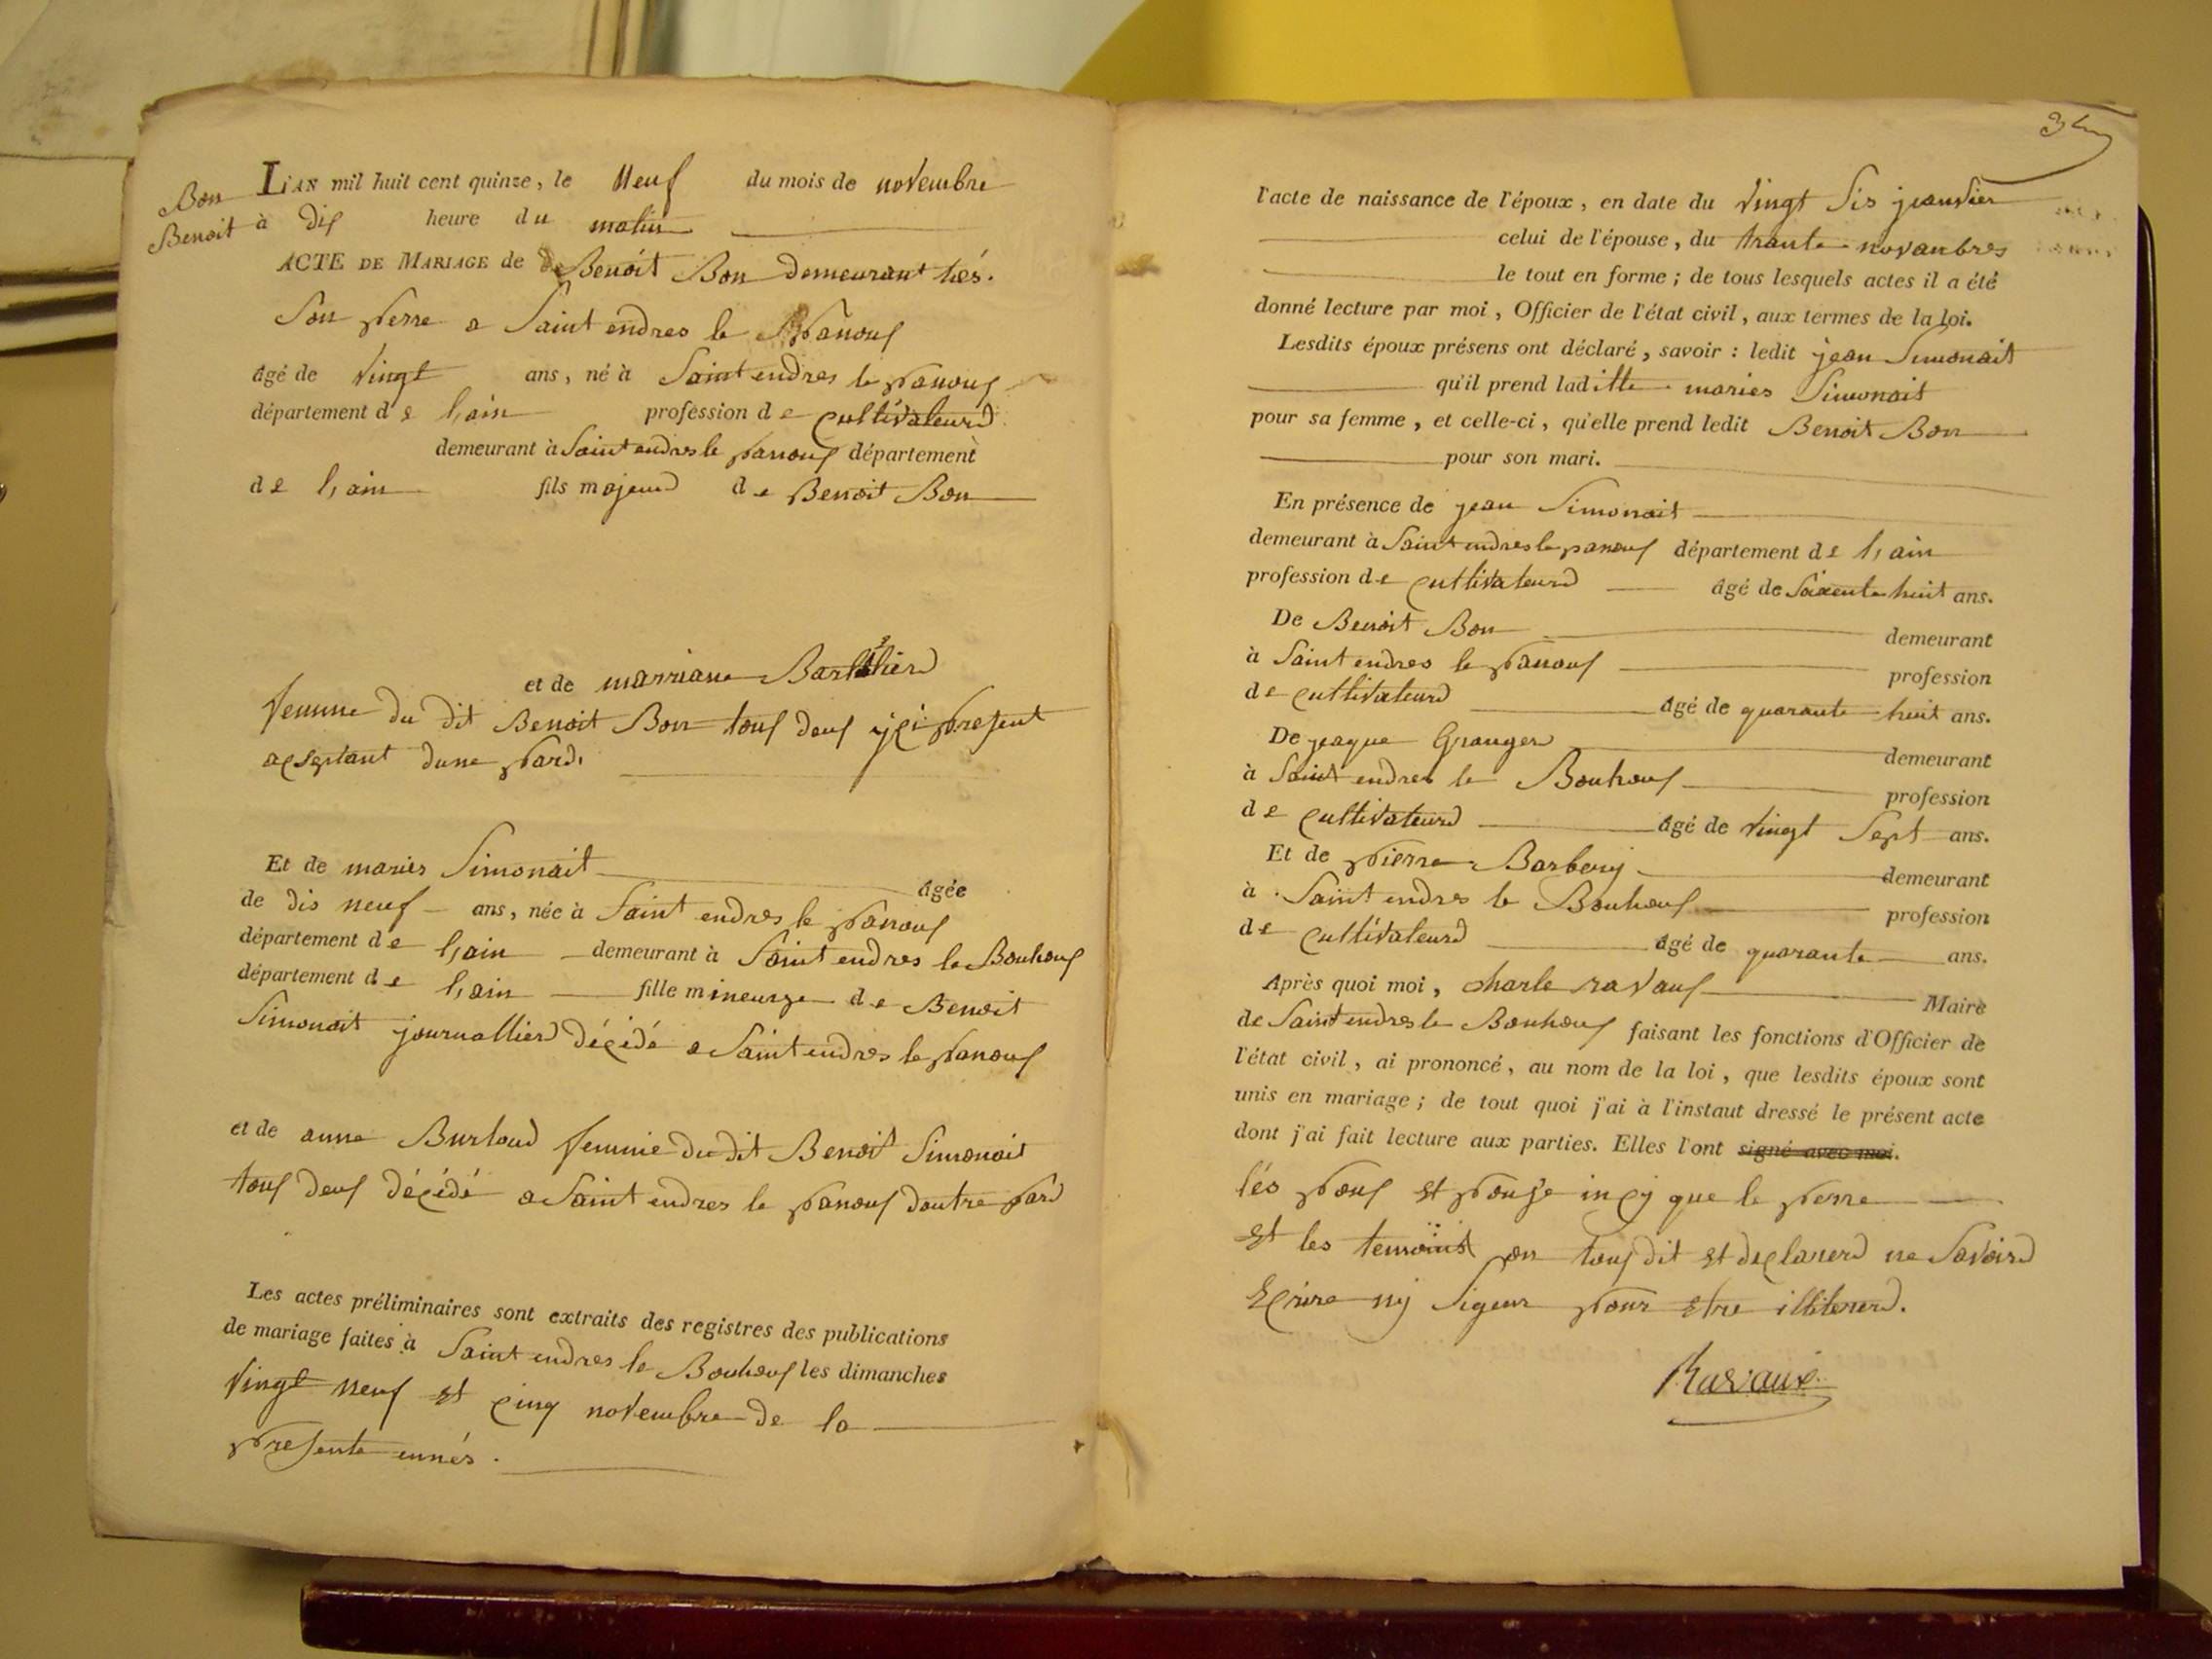 Bon
Benoit
L'AN mil huit cent quinze, le Neuf du mois de novembre
à dix heure du matin
ACTE DE MARIAGE de Benoit Bon demeurant
Son perre a Saint endres le panoux
âgé de vingt ans, né à Saint endres le panoux
département de lain profession de cultivateurd
demeurant à Saint endres le panoux département
de lain fils majeurd de Benoit Bon
et de marriane Barthier
femme du dit Benoit Bon tous deux ici present
acseptant dune pard.
Et de maries Simonait âgée
de dis neuf ans, née à Saint endres le panoux
département de lain demeurant à Saint endres le Bouhoux
département de lain fille mineurze de Benoit
Simonait journallierd décédé a Saint endres le panoux
et de anne Burtoud femme du dit Benoit Simonait
tous deux décédé a Saint endres le panoux doutre pard
Les actes préliminaires sont extraits des registres des publications
de mariage faites à Saint endres le Bouhoux les dimanches
vingt neuf et cinq novembre de la
presente ennés.
l'acte de naissance de l'époux, en date du vingt sis janvier
celui de l'épouse, du trante novanbres
le tout en forme ; de tous lesquels actes il a été
donné lecture par moi, Officier de l'état civil, aux termes de la loi.
Lesdits époux présens ont déclaré, savoir : ledit jean Simonait
qu'il prend laditte maries Simonait
pour sa femme, et celle-ci, qu'elle prend ledit Benoit Bon
pour son mari.
En présence de jean Simonait
demeurant à Saint endres le panoux département de lain
profession de cultivateurd âgé de Saixente huit ans.
De Benoit Bon demeurant
à Saint endres le panoux profession
de cultivateurd âgé de quarante huit ans.
De jeaque Granger demeurant
à Saint endres le Bouhoux profession
de cultivateurd âgé de vingt Sept ans.
Et de pierre Barberij demeurant
à Saint endres le Bouhoux profession
de cultivateurd âgé de quarante ans.
Après quoi moi, charle ravaux Maire
de Saint endres le Bouhoux faisant les fonctions d'Officier de
l'état civil, ai prononcé, au nom de la loi, que lesdits époux sont
unis en mariage ; de tout quoi j'ai à l'instaut dressé le présent acte
dont j'ai fait lecture aux parties. Elles l'ont signé avec moi.
lés poux et pouze incy que le perre
et les temoins on tous dit et declarerd ne Savoird
Ecrire nij Signer pour etre illitererd.
Ravaux